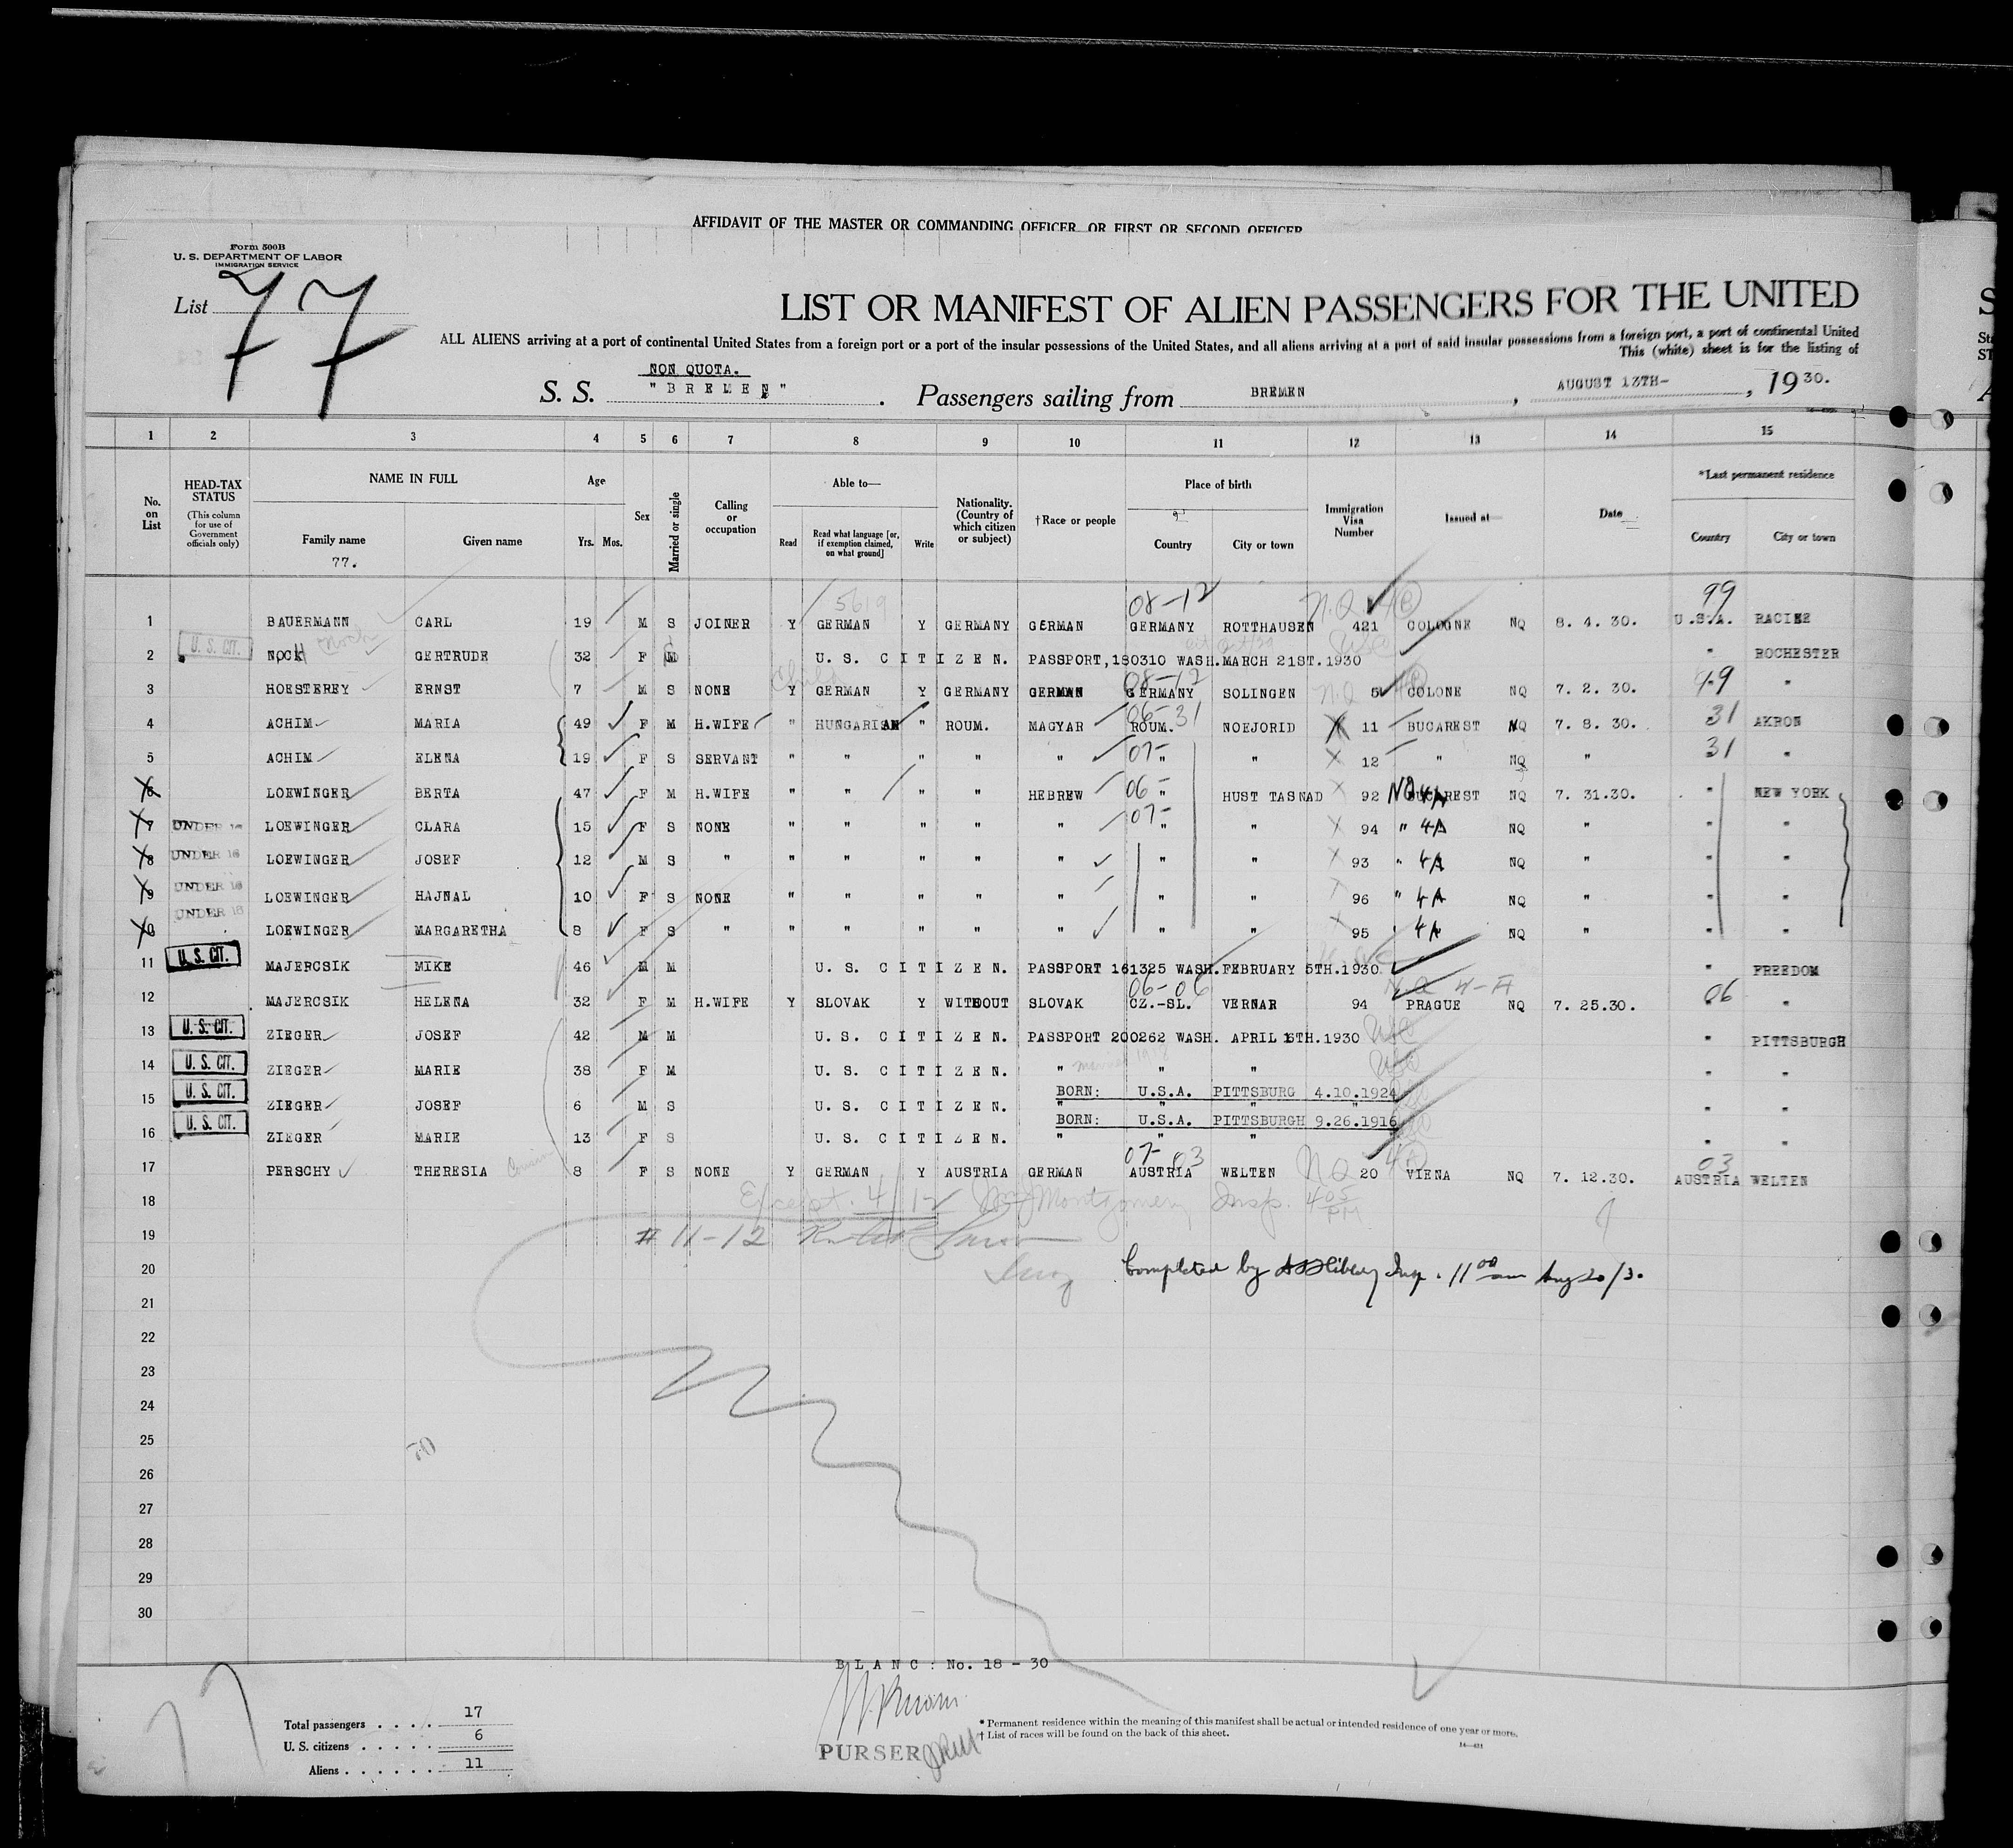 AFFIDAVIT OF THE MASTER OR COMMANDING OFFICER OR FIRST OR SECOND OFFICER
Form 500B
U. S. DEPARTMENT OF LABOR
IMMIGRATION SERVICE
List 77
LIST OR MANIFEST OF ALIEN PASSENGERS FOR THE UNITED
ALL ALIENS arriving at a port of continental United States from a foreign port or a port of the insular possessions of the United States, and all aliens arriving at a port of said insular possessions from a foreign port, a port of continental United
This (white) sheet is for the listing of
NON QUOTA.
S. S. "BREMEN". Passengers sailing from BREMEN, AUGUST 13TH-, 1930.
1 2 3 4 5 6 7 8 9 10 11 12 13 14 15
No. on List
HEAD-TAX STATUS (This column for use of Government officials only)
NAME IN FULL Family name Given name
77.
Age Yrs. Mos.
Sex
Married or single
Calling or occupation
Able to— Read Read what language [or, if exemption claimed, on what ground] Write
Nationality. (Country of which citizen or subject)
†Race or people
Place of birth Country City or town
Immigration Visa Number
Issued at—
Date
*Last permanent residence Country City or town
5619 08-12 N.Q. 99
1 BAUERMANN CARL 19 M S JOINER Y GERMAN Y GERMANY GERMAN GERMANY ROTTHAUSEN 421 COLOGNE NQ 8. 4. 30. U.S.A. RACINE
2 U. S. CIT. NOCH GERTRUDE 32 F M U. S. CITIZEN. PASSPORT,180310 WASH.MARCH 21ST.1930 " ROCHESTER
Child 08-12 N.Q
3 HOESTEREY ERNST 7 M S NONE Y GERMAN Y GERMANY GERMAN GERMANY SOLINGEN 5 COLONE NQ 7. 2. 30. 99 "
4 ACHIM MARIA 49 F M H.WIFE " HUNGARIAN " ROUM. MAGYAR 06-31 ROUM. NOEJORID 11 BUCAREST NQ 7. 8. 30. 31 AKRON
5 ACHIM ELENA 19 F S SERVANT " " " " " 07- " " 12 " NQ " 31 "
6 LOEWINGER BERTA 47 F M H.WIFE " " " " HEBREW 06- " HUST TASNAD 92 BUCAREST NQ 4A NQ 7. 31.30. " NEW YORK
7 UNDER 16 LOEWINGER CLARA 15 F S NONE " " " " " 07- " " 94 " 4A NQ " " "
8 UNDER 16 LOEWINGER JOSEF 12 M S " " " " " " " " 93 " 4A NQ " " "
9 UNDER 16 LOEWINGER HAJNAL 10 F S NONE " " " " " " " 96 " 4A NQ " " "
10 UNDER 16 LOEWINGER MARGARETHA 8 F S " " " " " " " " 95 " 4A NQ " " "
11 U. S. CIT. MAJERCSIK MIKE 46 M M U. S. CITIZEN. PASSPORT 161325 WASH.FEBRUARY 5TH.1930 " FREEDOM
06-06 N.Q 4-A
12 MAJERCSIK HELENA 32 F M H.WIFE Y SLOVAK Y WITHOUT SLOVAK CZ.-SL. VERNAR 94 PRAGUE NQ 7. 25.30. 06 " "
13 U. S. CIT. ZIEGER JOSEF 42 M M U. S. CITIZEN. PASSPORT 200262 WASH. APRIL 15TH.1930 USC " PITTSBURGH
14 U. S. CIT. ZIEGER MARIE 38 F M U. S. CITIZEN. " " " USC " "
BORN: U.S.A. PITTSBURG 4.10.1924
15 U. S. CIT. ZIEGER JOSEF 6 M S U. S. CITIZEN. " " " " "
BORN: U.S.A. PITTSBURGH 9.26.1916
16 U. S. CIT. ZIEGER MARIE 13 F S U. S. CITIZEN. " " " " "
07-03 03
17 PERSCHY THERESIA Cousin 8 F S NONE Y GERMAN Y AUSTRIA GERMAN AUSTRIA WELTEN NQ 20 VIENA NQ 7. 12.30. AUSTRIA WELTEN
18 Except. 4/12 Montgomery Insp. 4 05 PM
19 # 11-12
20 Completed by Insp. 11 00 am Aug 20/30
21
22
23
24
25
26
27
28
29
30
BLANC: No. 18 - 30
Total passengers . . . . 17
U. S. citizens . . . . . 6
Aliens . . . . . . 11
PURSER
* Permanent residence within the meaning of this manifest shall be actual or intended residence of one year or more.
† List of races will be found on the back of this sheet.